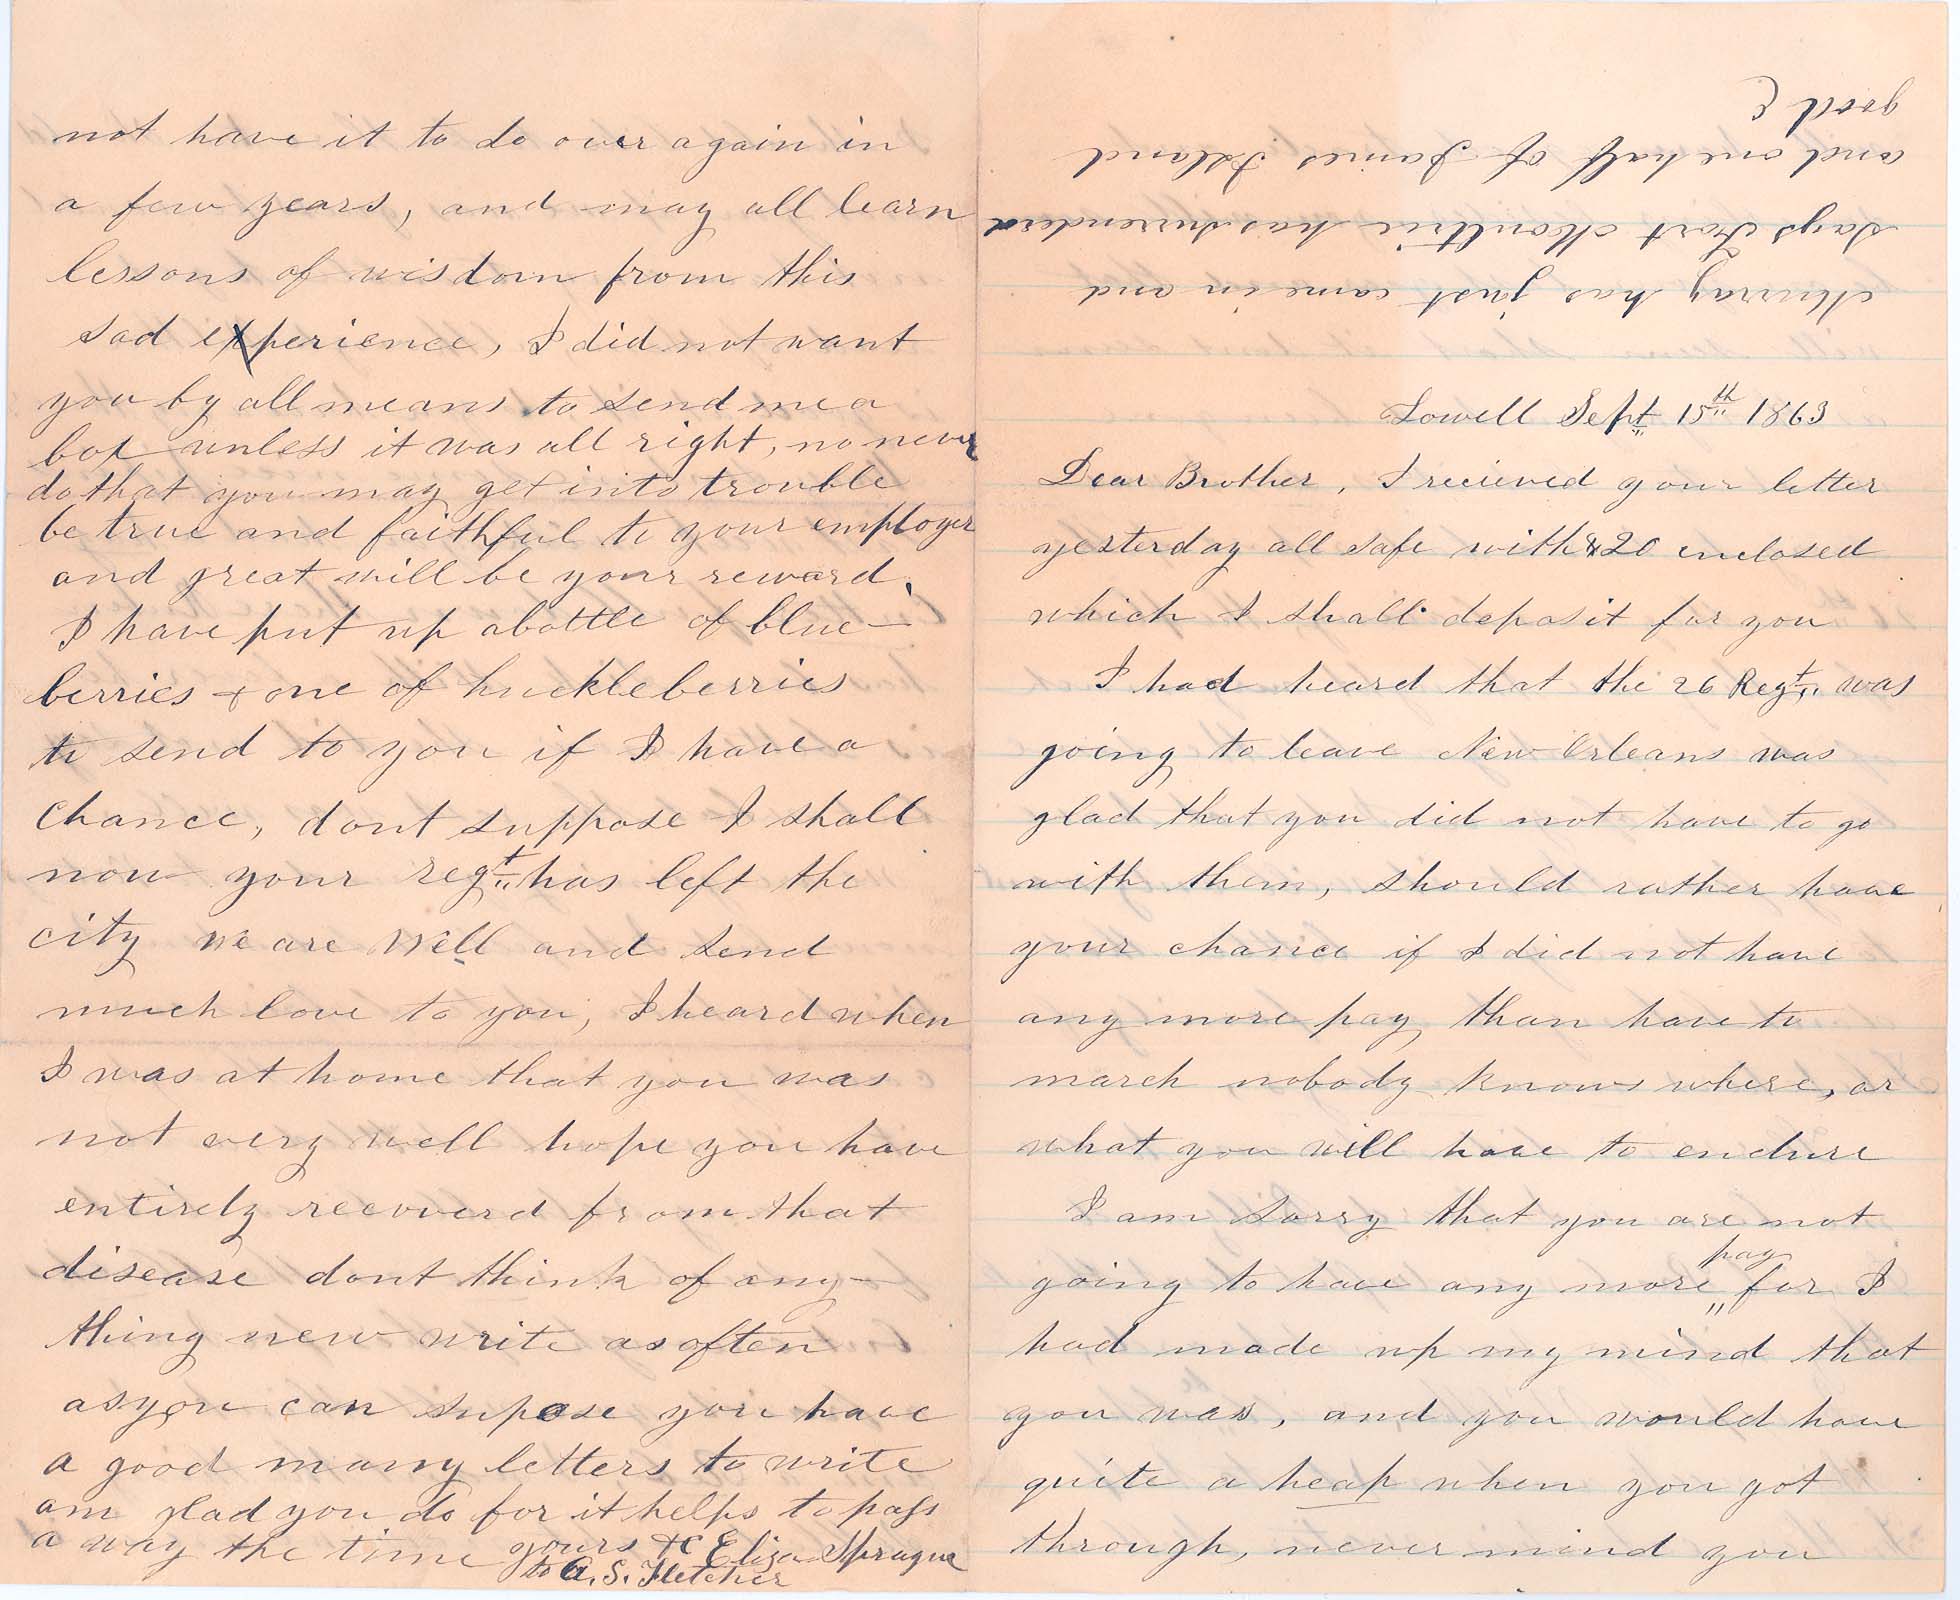 Lowell Sept 15th 1863
Dear Brother, I recieved your letter
yesterday all safe with $20 enclosed
which I shall deposit for you
I had heard that the 26 Regt was
going to leave New Orleans was
glad that you did not have to go
with them, should rather have
your chance if I did not have
any more pay than have to
march nobody knows where, or
what you will have to endure
I am Sorry that you are not
going to have any more pay for I
had made up my mind that
you was, and you would have
quite a heap when you got
through, never mind you
not have it to do over again in
a few years, and may all learn
lessons of wisdom from this
sad experience, I did not want
you by all means to send me a
box unless it was all right, no never
do that you may get into trouble
be true and faithful to your employer
and great will be your reward.
I have put up a bottle of blue-
berries & one of huckleberries
to send to you if I have a
chance, dont suppose I shall
now your regt has left the
city we are well and send
much love to you, I heard when
I was at home that you was
not very well hope you have
entirely recoverd from that
disease dont think of any-
thing new write as often
as you can supose you have
a good many letters to write
am glad you do for it helps to pass
a way the time yours &c Eliza Sprague
to A. S. Fletcher
Murray has just came in and
says Fort Moultrie has surrenderd
and one half of James Island
good